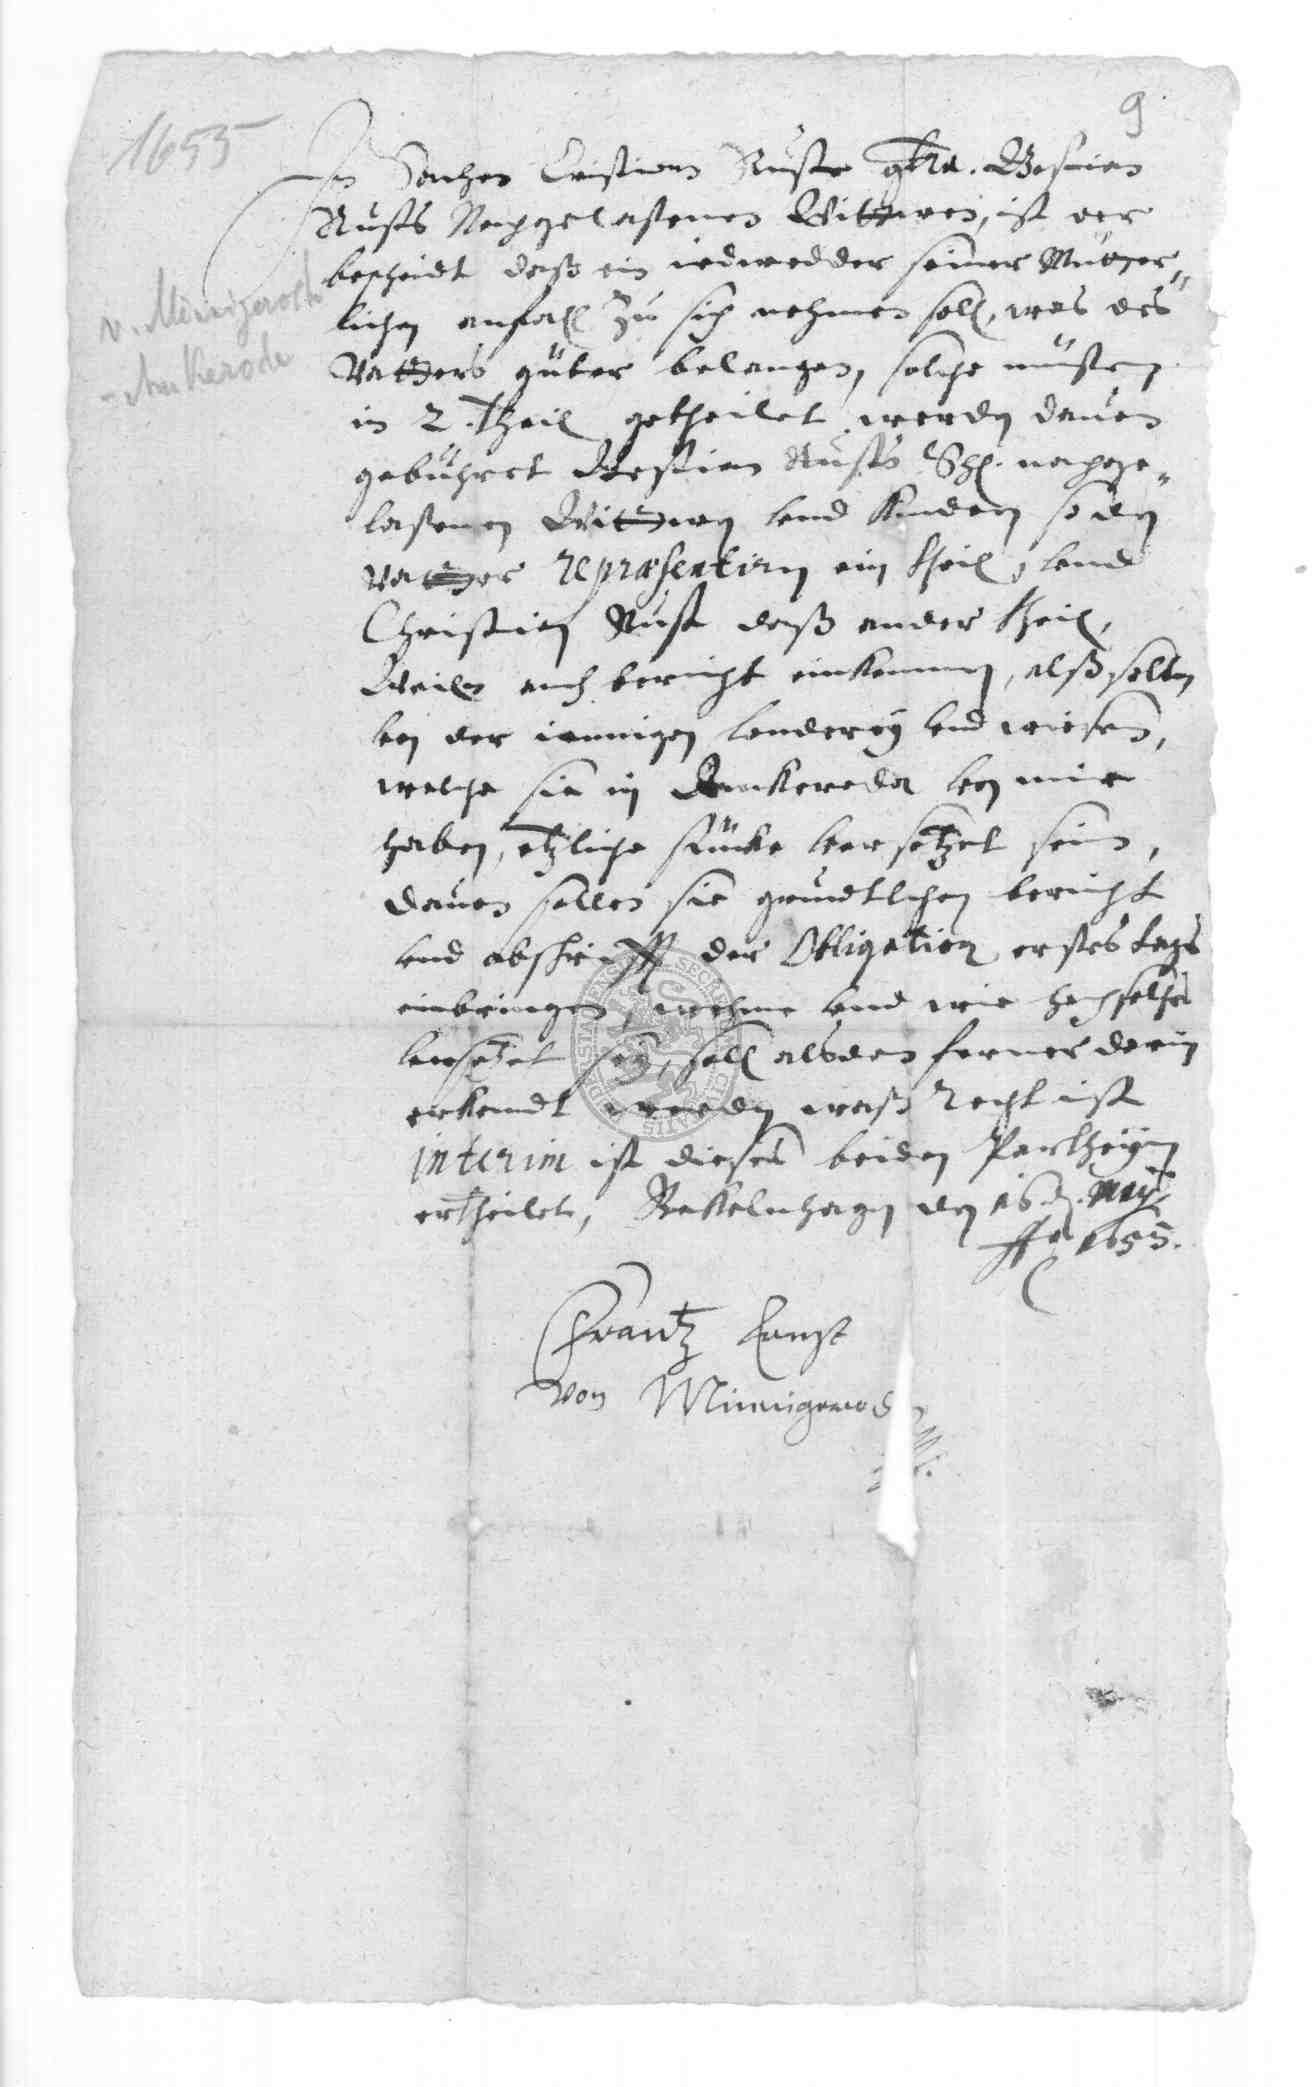 1655
9
In Sachen Cristian Rust ctra. Bestian
Rusts Nachgelaßenen Wittwen, ist der
bescheidt daß ein iedwedder seiner Mütter„
lichen anfall zu sich nehmen soll, was des
Vatters güter belangen, solche müßen
in 2. theil getheilet werden davon
gebühret Bestian Rusts Sehl. nachge„
laßenen Wittwen vnd Kindern so den
Vatter repræsentirn ein theil, vnd
Christian Rust daß ander theil,
Weiln auch bericht einkommen, alß solten
von der ienigen Landerey vnd wiesen,
welche sie in Desskerode von mir
haben, etzliche stücke versetzet sein,
davon sollen sie grundtlichen bericht
vnd abschrifft der Obligation erstes tags
einbringen, wehme vnd wie hoch solches
versetzet sey, soll alsdan ferner darin
erkandt werden waß recht ist
interim ist dieses beiden Partheyen
ertheilet, Bokelnhagen den 16. May
Ao 1655.
Frantz Ernst
von Minnigerode
v. Minnigerode